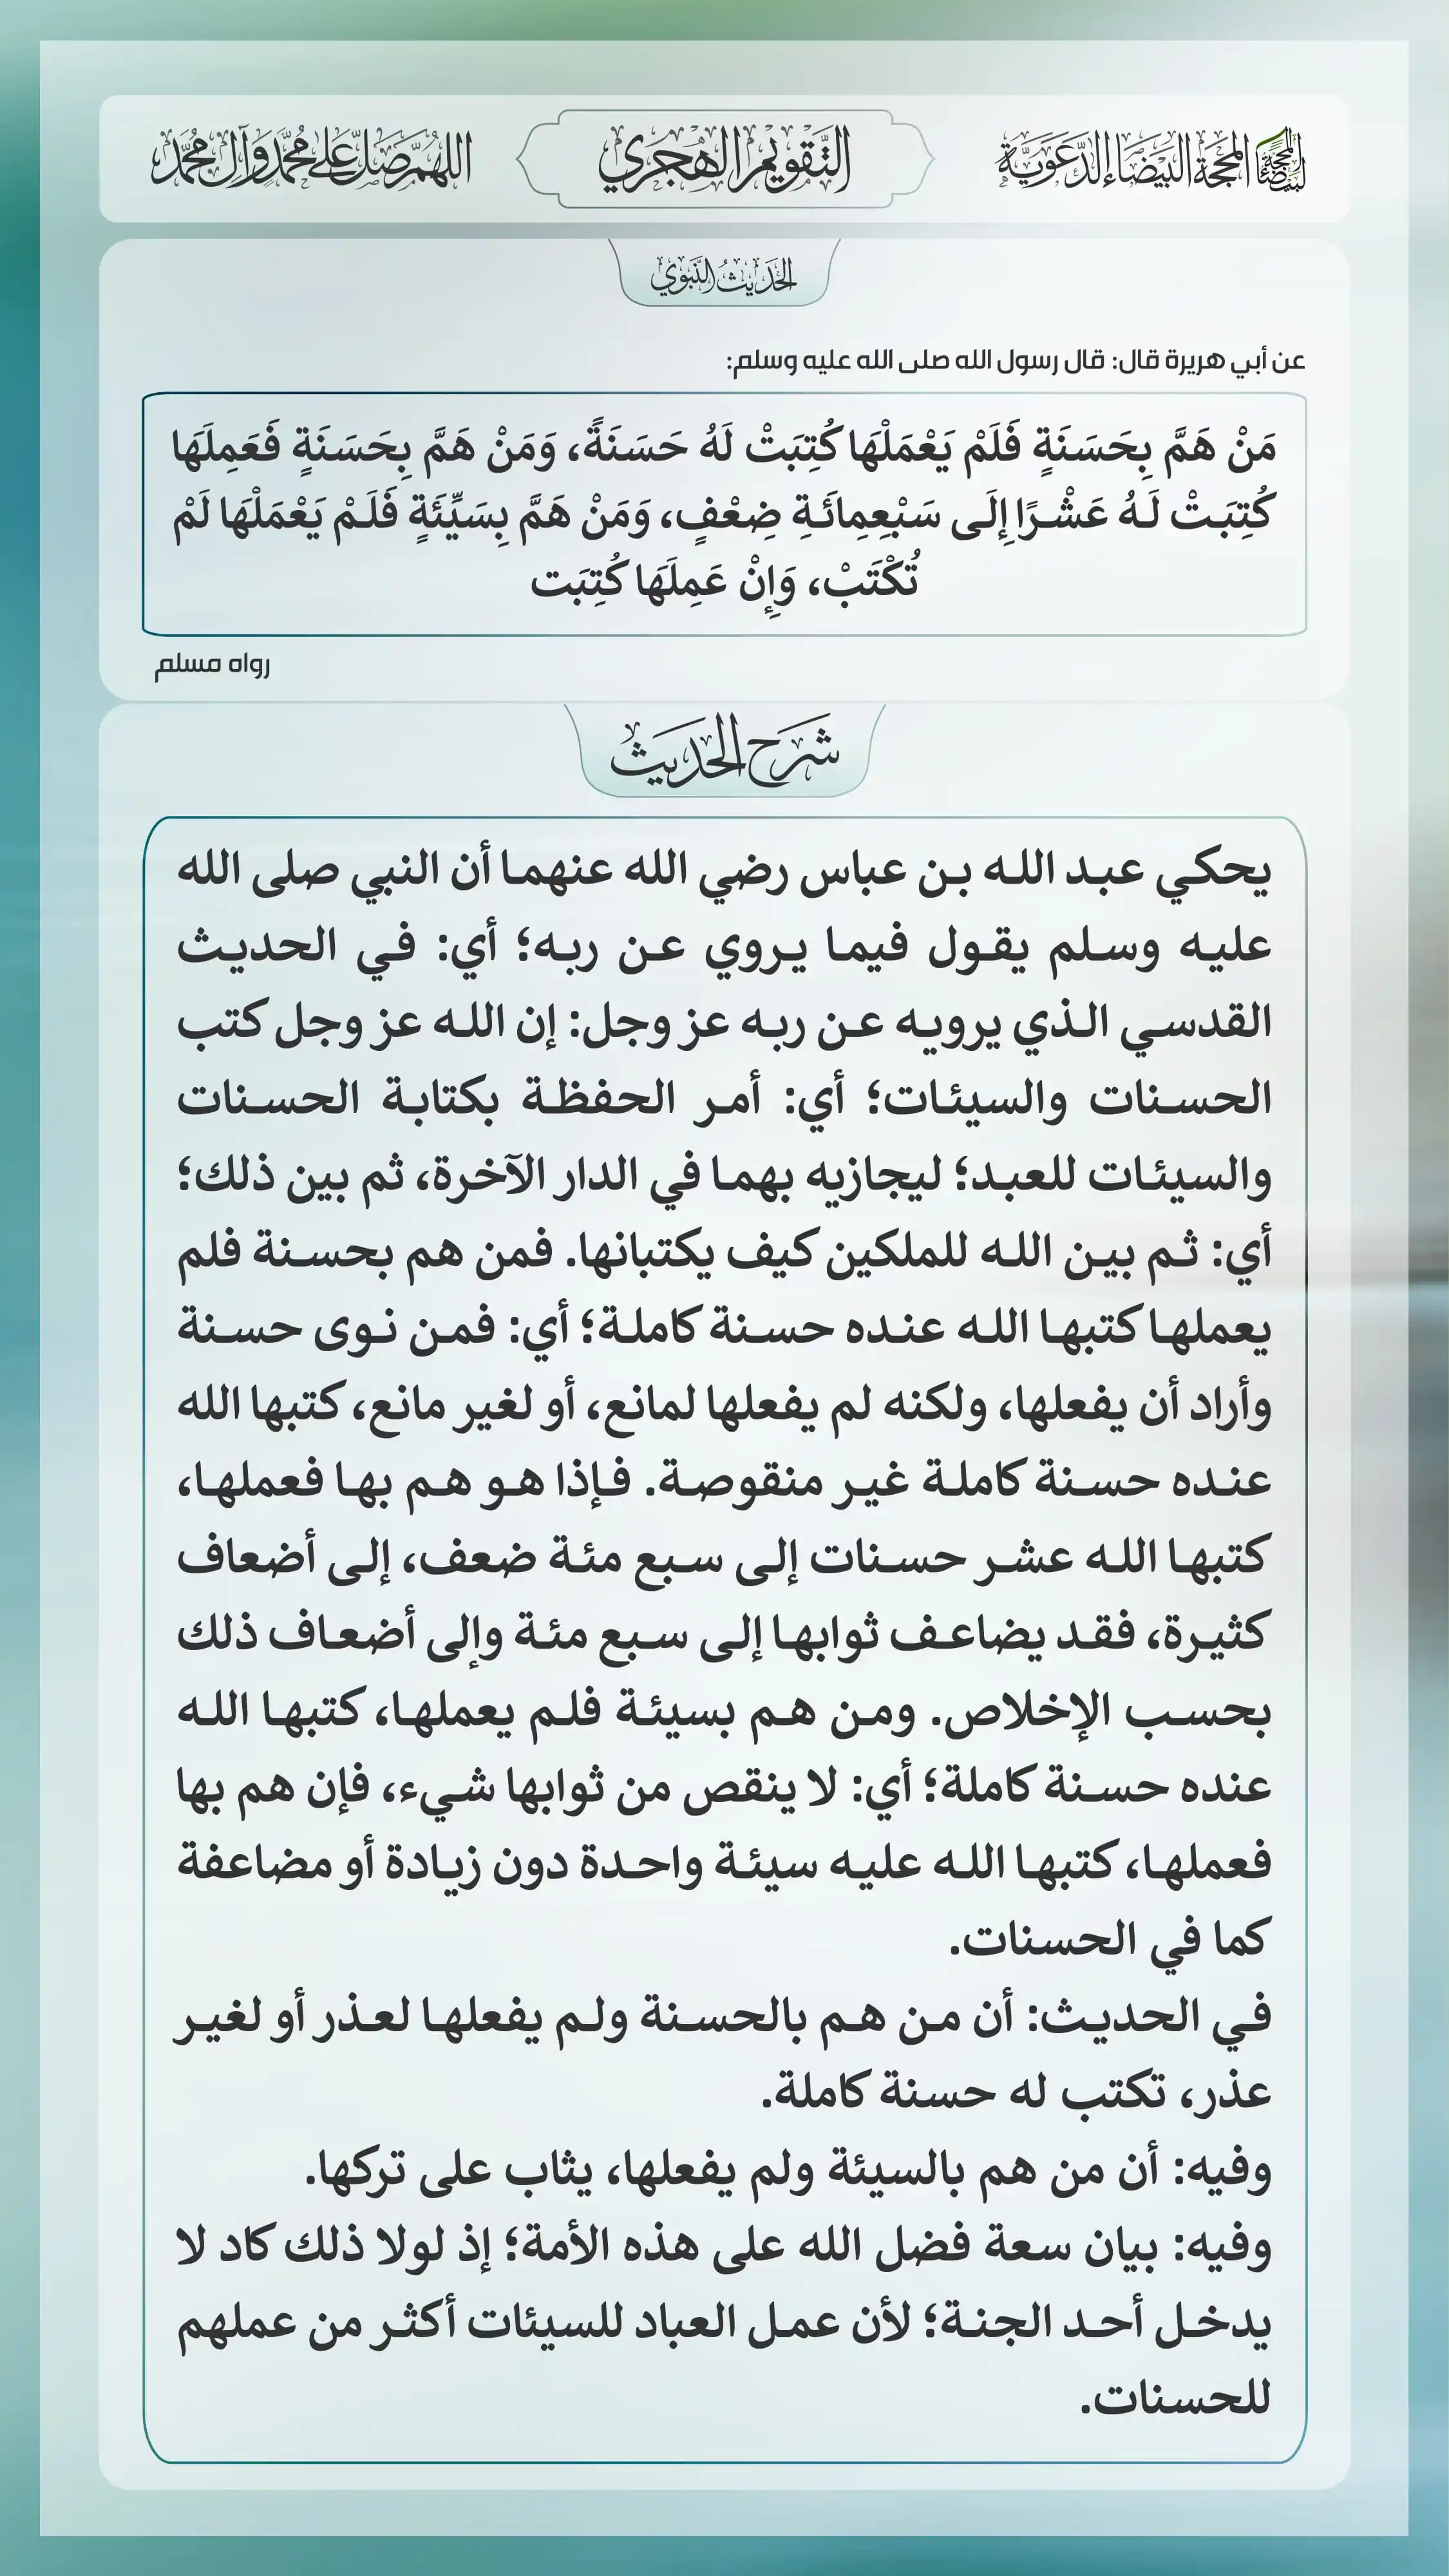 المحجة البيضاء الدعوية
التَّقويم الهجري
اللهم صل على محمد وآل محمد
الحديث النبوي
عن أبي هريرة قال: قال رسول الله صلى الله عليه وسلم:
مَنْ هَمَّ بِحَسَنَةٍ فَلَمْ يَعْمَلْهَا كُتِبَتْ لَهُ حَسَنَةً، وَمَنْ هَمَّ بِحَسَنَةٍ فَعَمِلَهَا
كُتِبَتْ لَهُ عَشْرًا إِلَى سَبْعِمِائَةِ ضِعْفٍ، وَمَنْ هَمَّ بِسَيِّئَةٍ فَلَمْ يَعْمَلْهَا لَمْ
تُكْتَبْ، وَإِنْ عَمِلَهَا كُتِبَت
رواه مسلم
شرح الحديث
يحكي عبد الله بن عباس رضي الله عنهما أن النبي صلى الله
عليه وسلم يقول فيما يروي عن ربه؛ أي: في الحديث
القدسي الذي يرويه عن ربه عز وجل: إن الله عز وجل كتب
الحسنات والسيئات؛ أي: أمر الحفظة بكتابة الحسنات
والسيئات للعبد؛ ليجازيه بهما في الدار الآخرة، ثم بين ذلك؛
أي: ثم بين الله للملكين كيف يكتبانها. فمن هم بحسنة فلم
يعملها كتبها الله عنده حسنة كاملة؛ أي: فمن نوى حسنة
وأراد أن يفعلها، ولكنه لم يفعلها لمانع، أو لغير مانع، كتبها الله
عنده حسنة كاملة غير منقوصة. فإذا هو هم بها فعملها،
كتبها الله عشر حسنات إلى سبع مئة ضعف، إلى أضعاف
كثيرة، فقد يضاعف ثوابها إلى سبع مئة وإلى أضعاف ذلك
بحسب الإخلاص. ومن هم بسيئة فلم يعملها، كتبها الله
عنده حسنة كاملة؛ أي: لا ينقص من ثوابها شيء، فإن هم بها
فعملها، كتبها الله عليه سيئة واحدة دون زيادة أو مضاعفة
كما في الحسنات.
في الحديث: أن من هم بالحسنة ولم يفعلها لعذر أو لغير
عذر، تكتب له حسنة كاملة.
وفيه: أن من هم بالسيئة ولم يفعلها، يثاب على تركها.
وفيه: بيان سعة فضل الله على هذه الأمة؛ إذ لولا ذلك كاد لا
يدخل أحد الجنة؛ لأن عمل العباد للسيئات أكثر من عملهم
للحسنات.